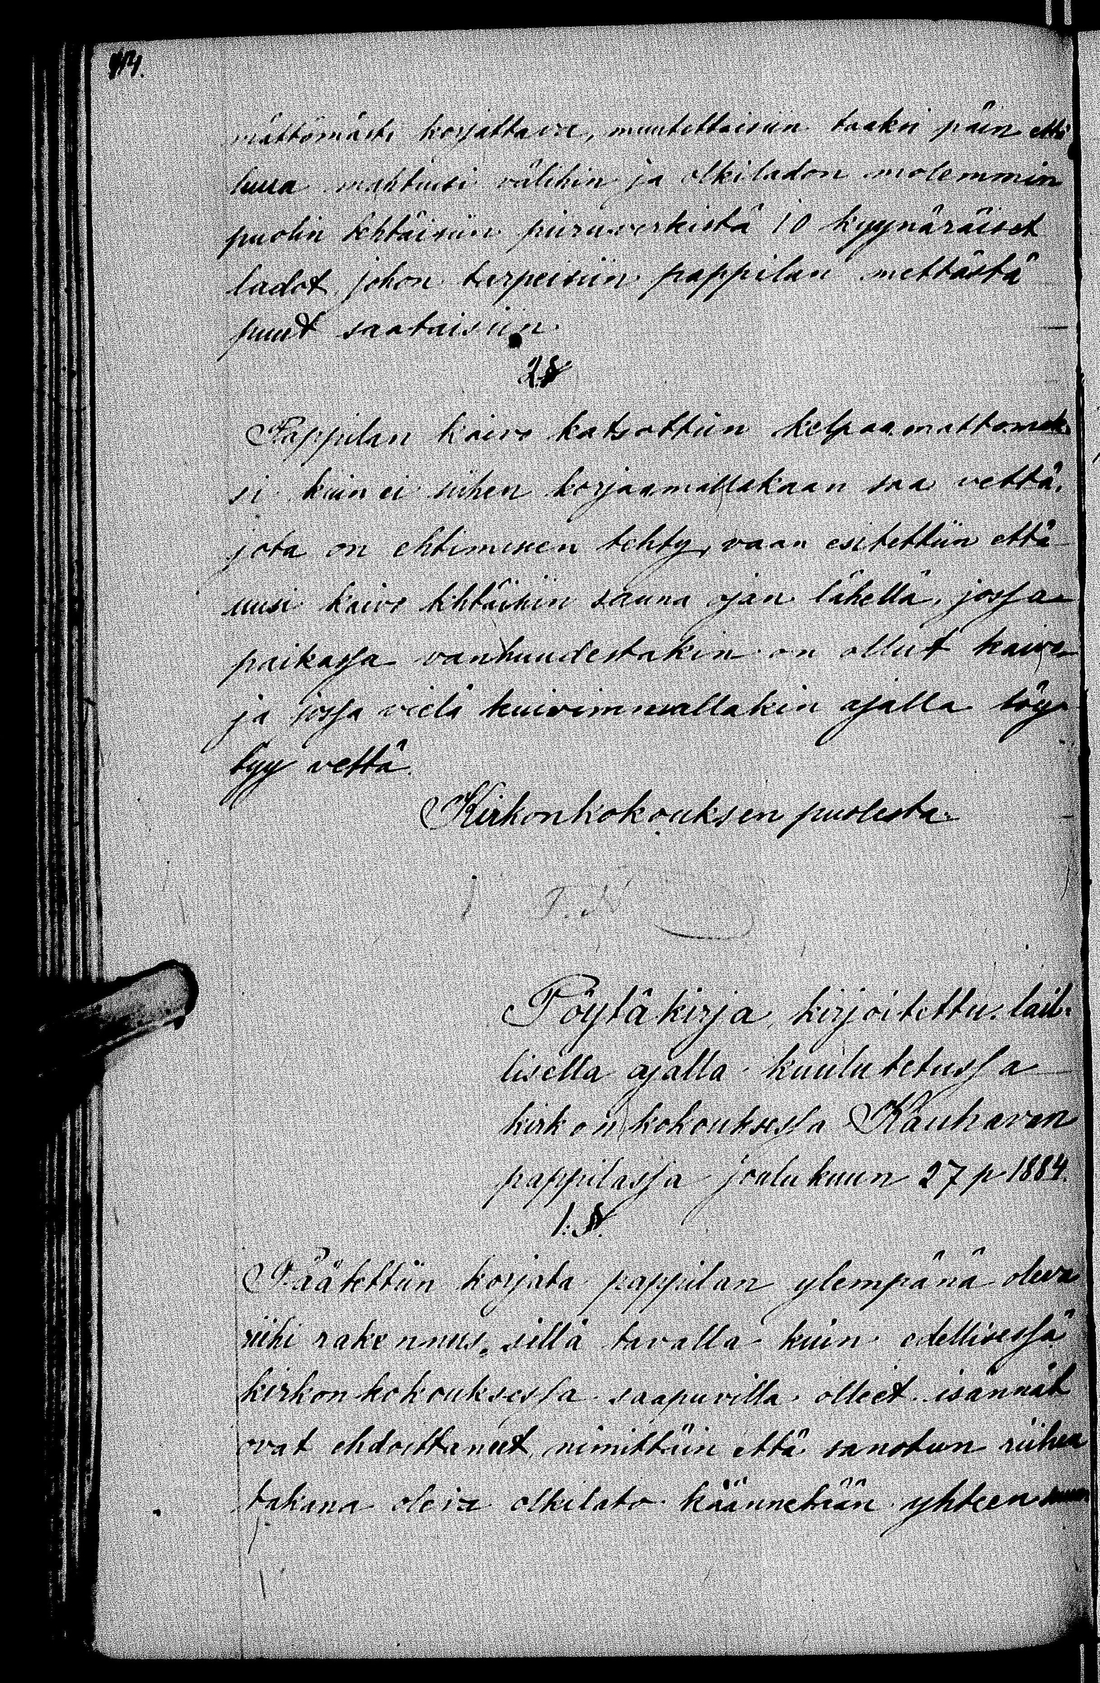 mättömästi korjattava, muutettaisiin taaksi päin että
luua mahtuisi välihin ja olkiladon molemmin
puolin tehtäisiin piiruverkistä 10 kyynäräiset
ladot, johon tarpeisiin pappilan mettästä
puut saataisiin.
2 §
Pappilan kaivo katsottiin kelpaamattomak-
si kuin ei siihen korjaamallakaan saa vettä,
jota on ehtimiseen tehty, vaan esitettiin että
uusi kaivo tehtäisiin sauna ojan lähellä, jossa
paikassa vanhuudestakin on ollut kaivo
ja jossa vielä kuivimmallakin ajalla löy-
tyy vettä.
Kirkonkokouksen puolesta
Pöytäkirja, kirjoitettu lail-
lisella ajalla kuulutetussa
kirkonkokouksessa Kauhavan
pappilassa joulukuun 27 p 1884.
1. §.
Päätettiin korjata pappilan ylempänä oleva
riihi rakennus, sillä tavalla kuin edellisessä
kirkonkokouksessa saapuvilla olleet isännät
ovat ehdoittaneet, nimittäin että sanotun riihen
takana oleva olkilato käännetään yhteen